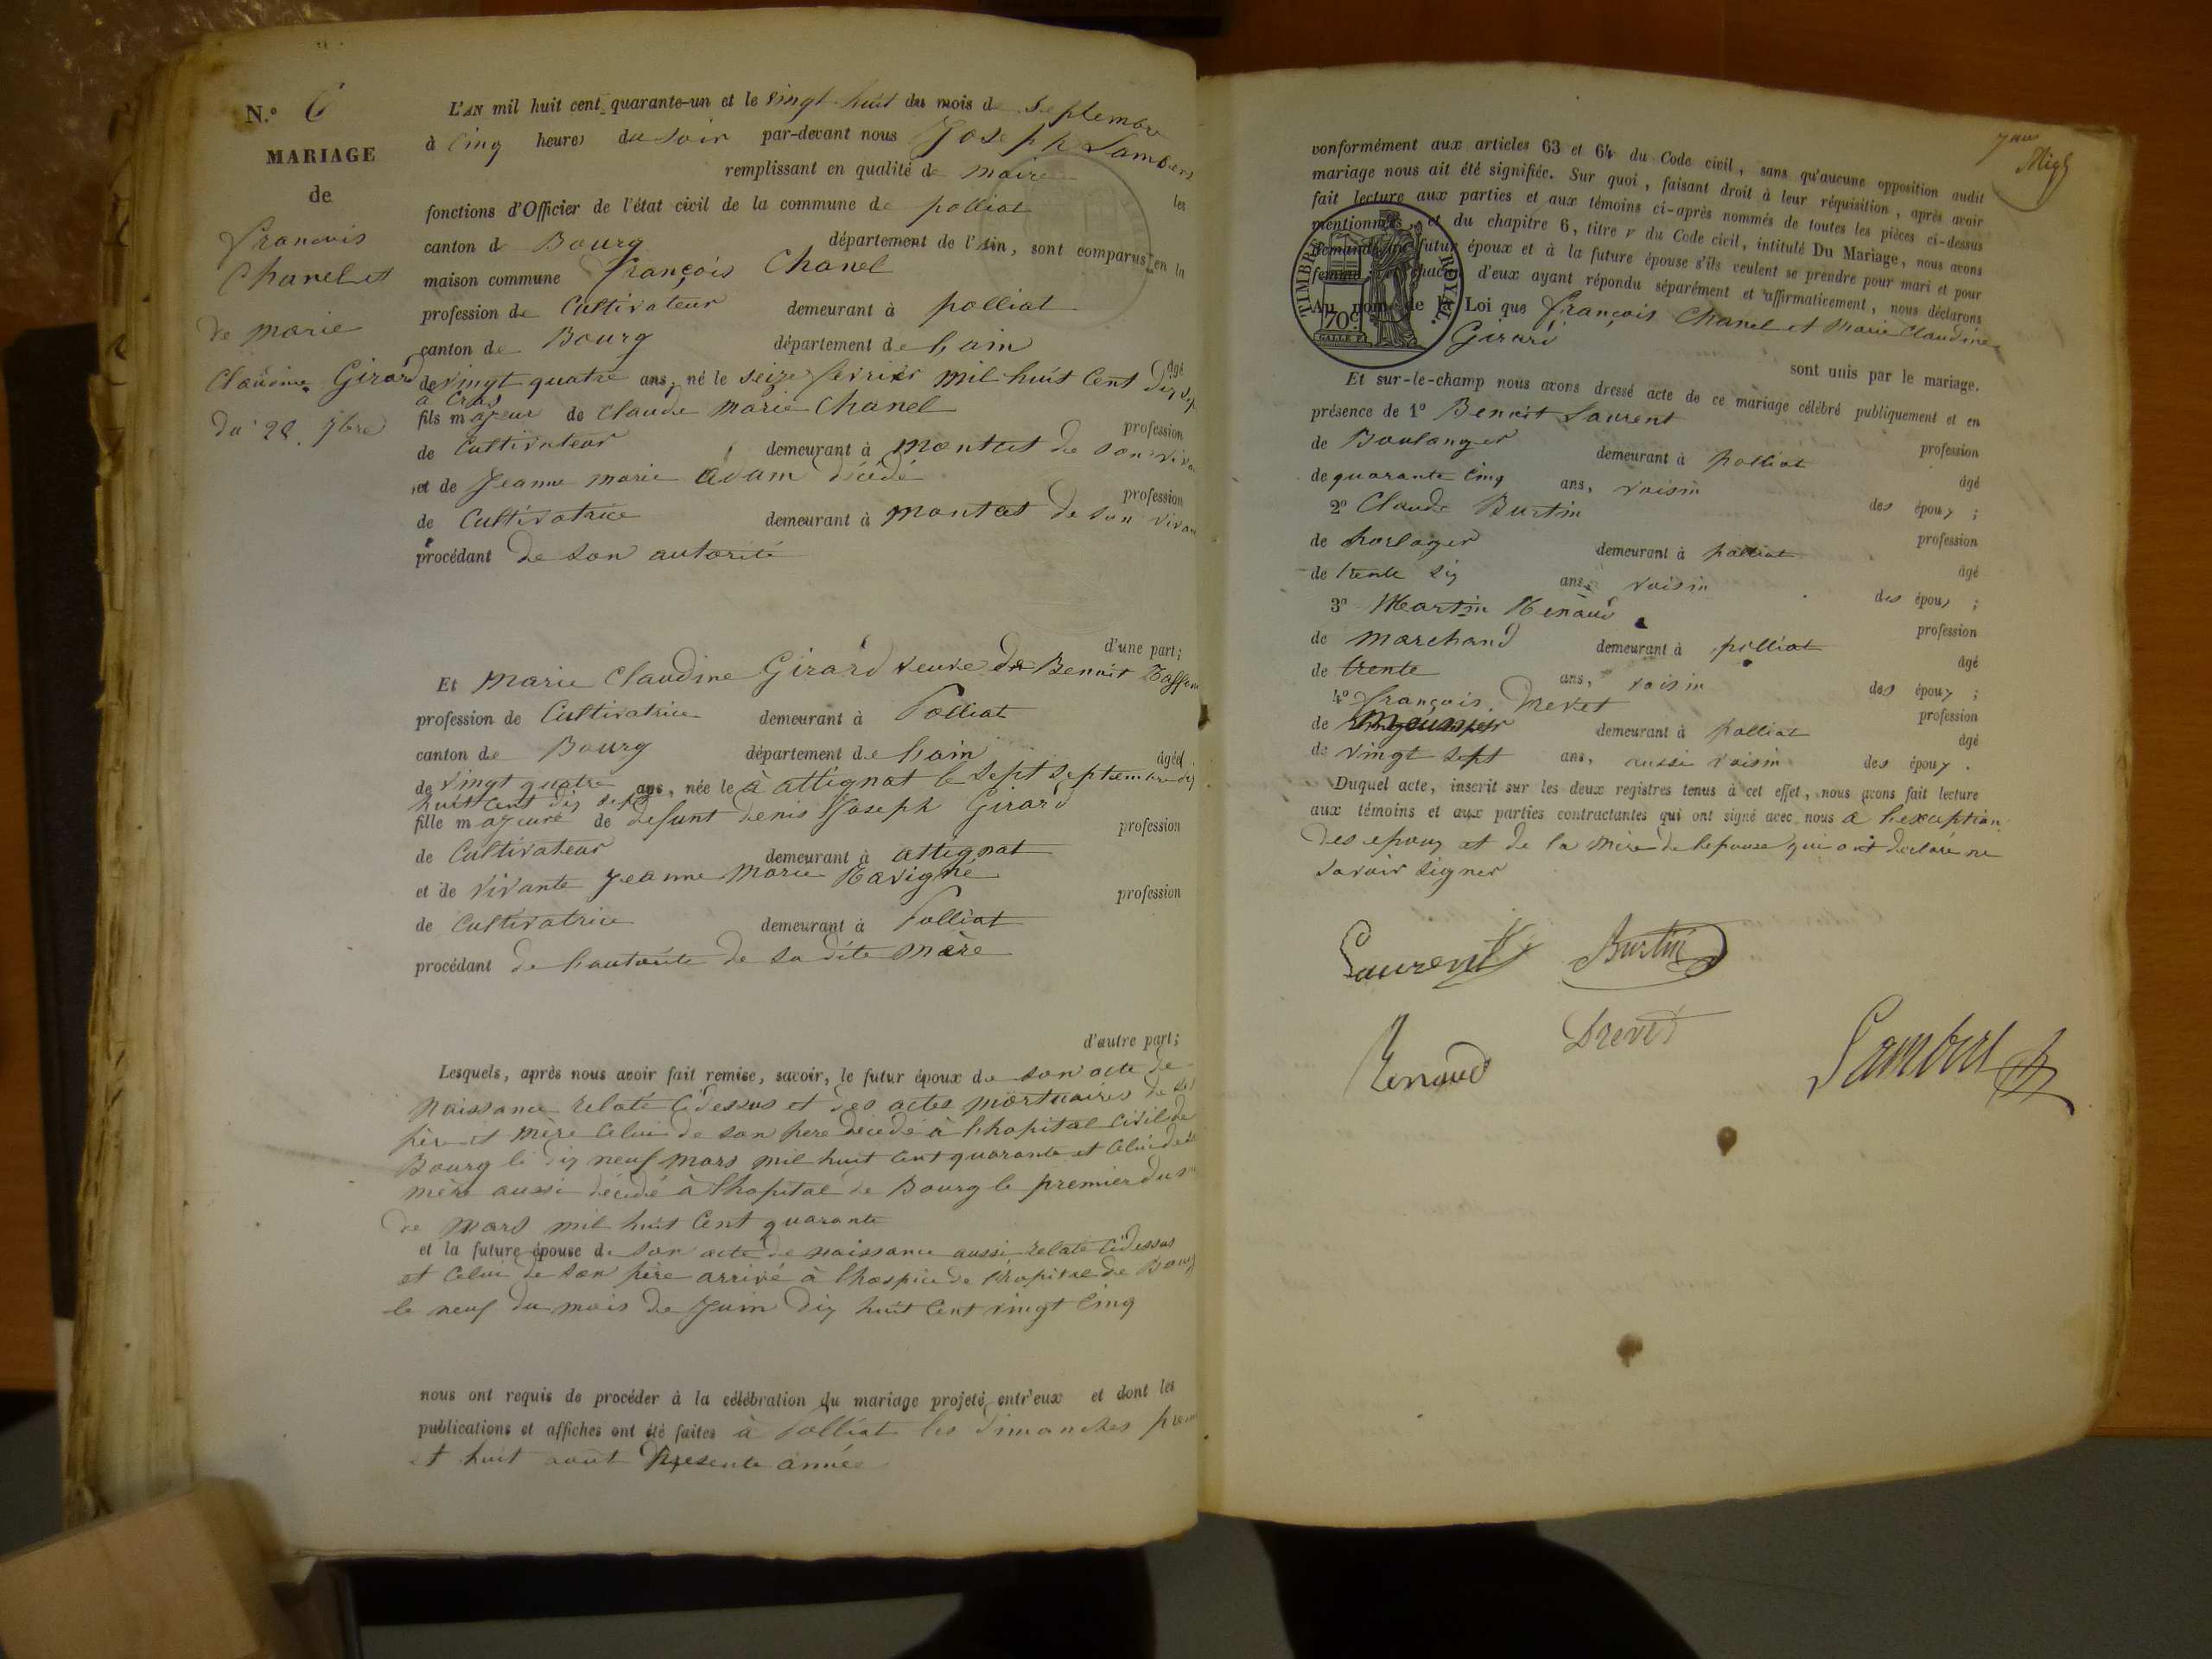 N.o 6
MARIAGE
de
francois
Chanel et
de marie
Claudine Girard
du 28 7bre
L'AN mil huit cent quarante-un et le vingt huit du mois de Septembre
à Cinq heures du soir par-devant nous Joseph Lambert
remplissant en qualité de maire les
fonctions d'Officier de l'état civil de la commune de polliat
canton de Bourg département de l'Ain, sont comparus en la
maison commune françois Chanel
profession de Cultivateur demeurant à polliat
canton de Bourg département de lain âgé
de vingt quatre ans, né le seize fevrier mil huit Cent dix sep
a Cras
fils majeur de Claude marie Chanel profession
de Cultivateur demeurant à montat de son viva
et de Jeanne marie adam décédé profession
de Cultivatrice demeurant à montat de son vivan
procédant de son autorité
d'une part;
Et marie Claudine Girard veuve de Benoit
profession de Cultivatrice demeurant à Polliat
canton de Bourg département de lain âgée
de vingt quatre ans, née le à attignat le sept septembre dix
huit Cent dix sept
fille majeure de defunt denis Joseph Girard profession
de Cultivateur demeurant à attignat
et de vivante Jeanne Marie profession
de Cultivatrice demeurant à Polliat
procédant de lautorité de sa dite mère
d'autre part;
Lesquels, après nous avoir fait remise, savoir, le futur époux de son acte de
naissance relaté Cidessus et des actes mortuaires de ses
père et mère Celui de son pere décédé à lhopital Civil de
Bourg le dix neuf mars mil huit Cent quarante et Celui de sa
mère aussi décédé à lhopital de Bourg le premier du m
de mars mil huit Cent quarante
et la future épouse de son acte de naissance aussi relaté Cidessus
et Celui de son père arrivé à lhospice de lhopital de Bourg
le neuf du mois de Juin dix huit Cent vingt Cinq
nous ont requis de procéder à la célébration du mariage projeté entr'eux et dont les
publications et affiches ont été faites à Polliat les dimanches prem
et huit août presente année
conformément aux articles 63 et 64 du Code civil, sans qu'aucune opposition audit
mariage nous ait été signifiée. Sur quoi, faisant droit à leur réquisition, après avoir
fait lecture aux parties et aux témoins ci-après nommés de toutes les pièces ci-dessus
mentionnées, et du chapitre 6, titre v du Code civil, intitulé Du Mariage, nous avons
demandé au futur époux et à la future épouse s'ils veulent se prendre pour mari et pour
femme; chacun d'eux ayant répondu séparément et affirmativement, nous déclarons
Au nom de la Loi que françois Chanel et Marie Claudine
Girard
TIMBRE ROYAL.
70c
sont unis par le mariage.
Et sur-le-champ nous avons dressé acte de ce mariage célébré publiquement et en
présence de 1o Benoit Laurent profession
de Boulanger demeurant à polliat âgé
de quarante Cinq ans, voisin des époux;
2o Claude Burtin profession
de horloger demeurant à polliat âgé
de trente six ans, voisin des époux;
3o Martin Renaud profession
de marchand demeurant à polliat âgé
de trente ans, voisin des époux;
4o françois Drevet profession
de meunier demeurant à polliat âgé
de vingt sept ans, aussi voisin des époux.
Duquel acte, inscrit sur les deux registres tenus à cet effet, nous avons fait lecture
aux témoins et aux parties contractantes qui ont signé avec nous a lexception
des epoux et de la mère de lepouse qui ont déclaré ne
savoir signer
Laurent Burtin
Renaud Drevet Lambert